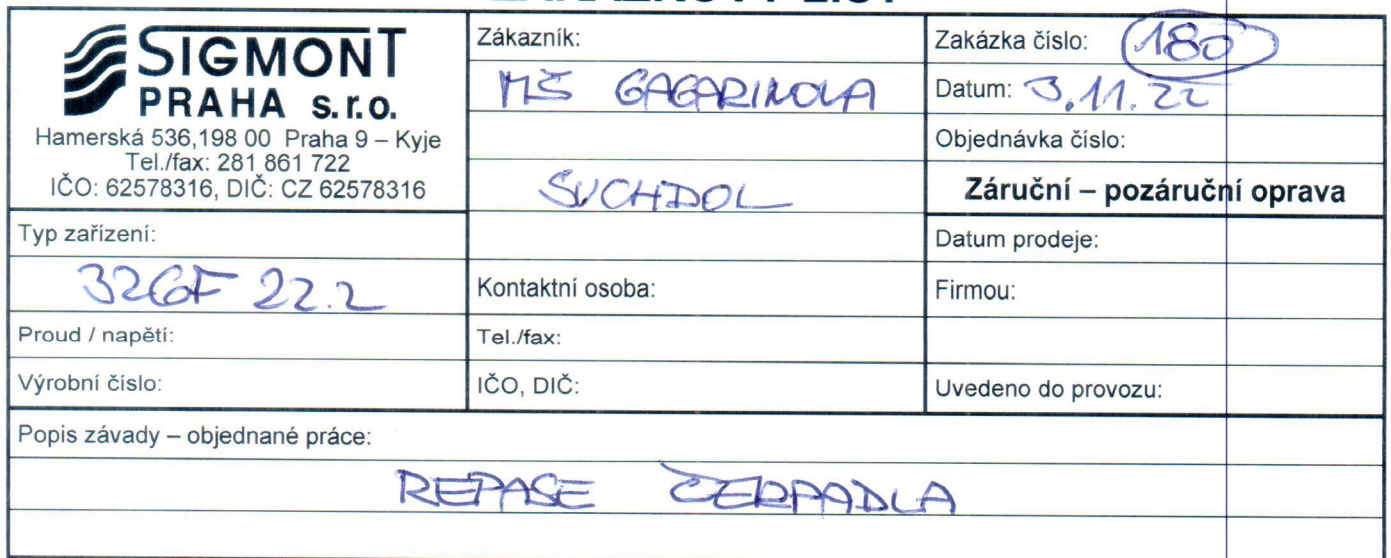 SIGMONT
PRAHA s.r.o.
Hamerská 536,198 00 Praha 9 – Kyje
Tel./fax: 281 861 722
IČO: 62578316, DIČ: CZ 62578316
Zákazník:
MŠ GAGARINOVA
SUCHDOL
Zakázka číslo: 180
Datum: 3.11.22
Objednávka číslo:
Záruční – pozáruční oprava
Typ zařízení:
Datum prodeje:
Kontaktní osoba:
Firmou:
Proud / napětí:
Tel./fax:
Výrobní číslo:
IČO, DIČ:
Uvedeno do provozu:
Popis závady – objednané práce:
REPASE ČERPADLA